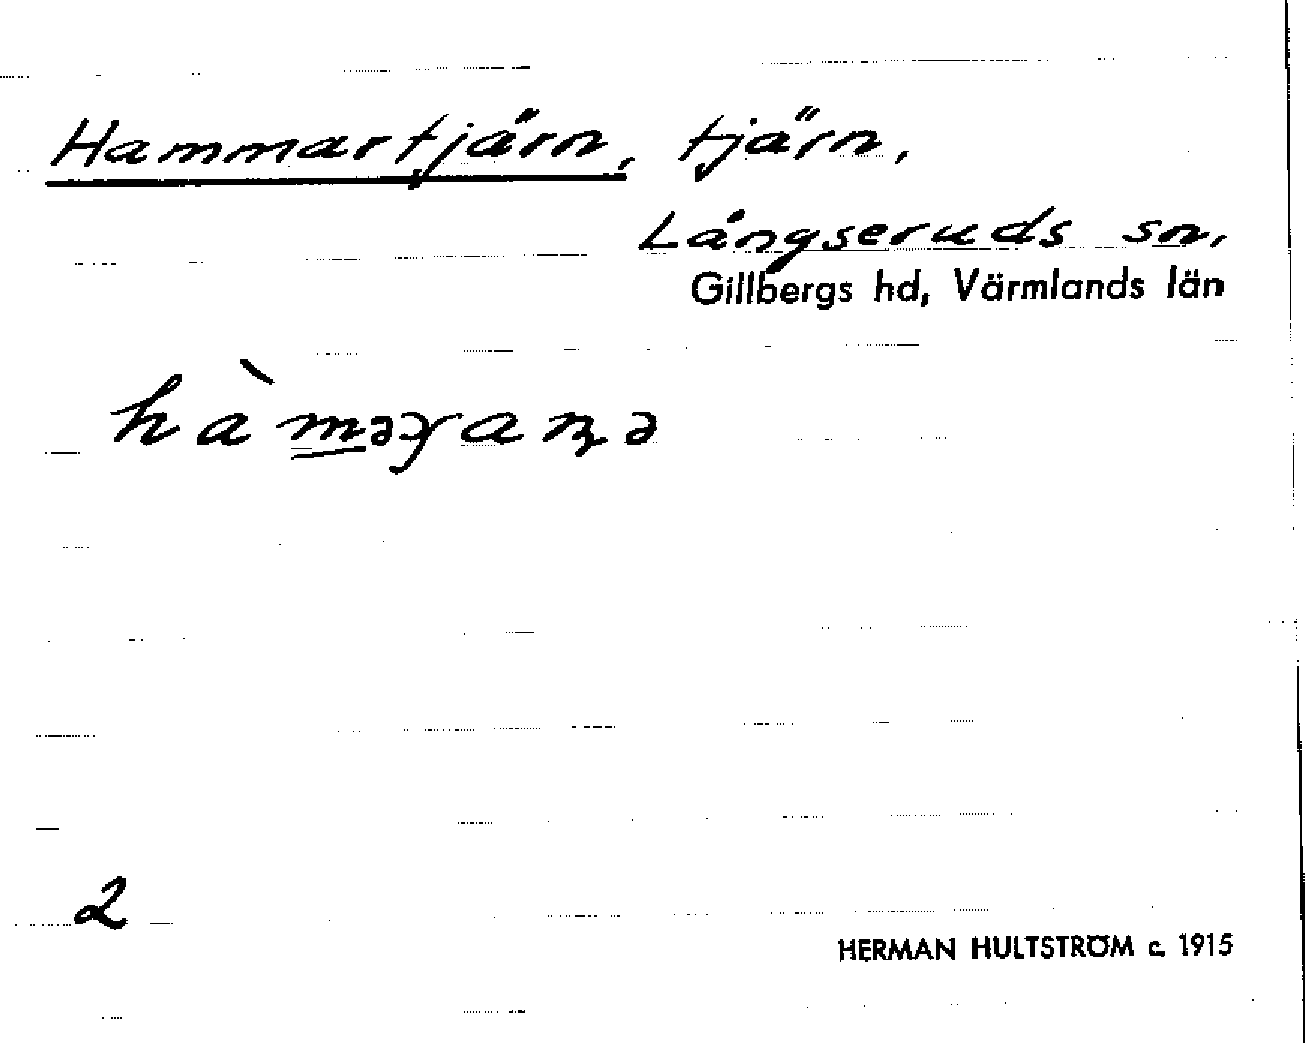 Hammartjärn, tjärn,
Långseruds sn,
Gillbergs hd, Värmlands län
2
HERMAN HULTSTRÖM c. 1915